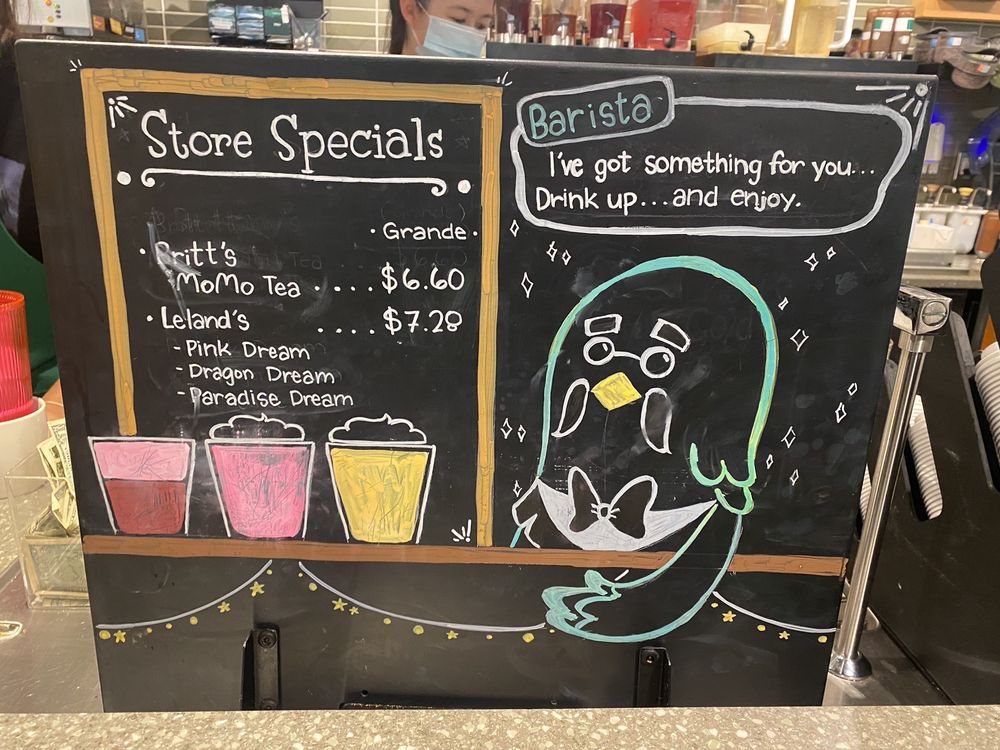 Store Specials
· Grande ·
· Britt's
MoMo Tea .... $6.60
· Leland's .... $7.28
- Pink Dream
- Dragon Dream
- Paradise Dream
Barista
I've got something for you...
Drink up...and enjoy.